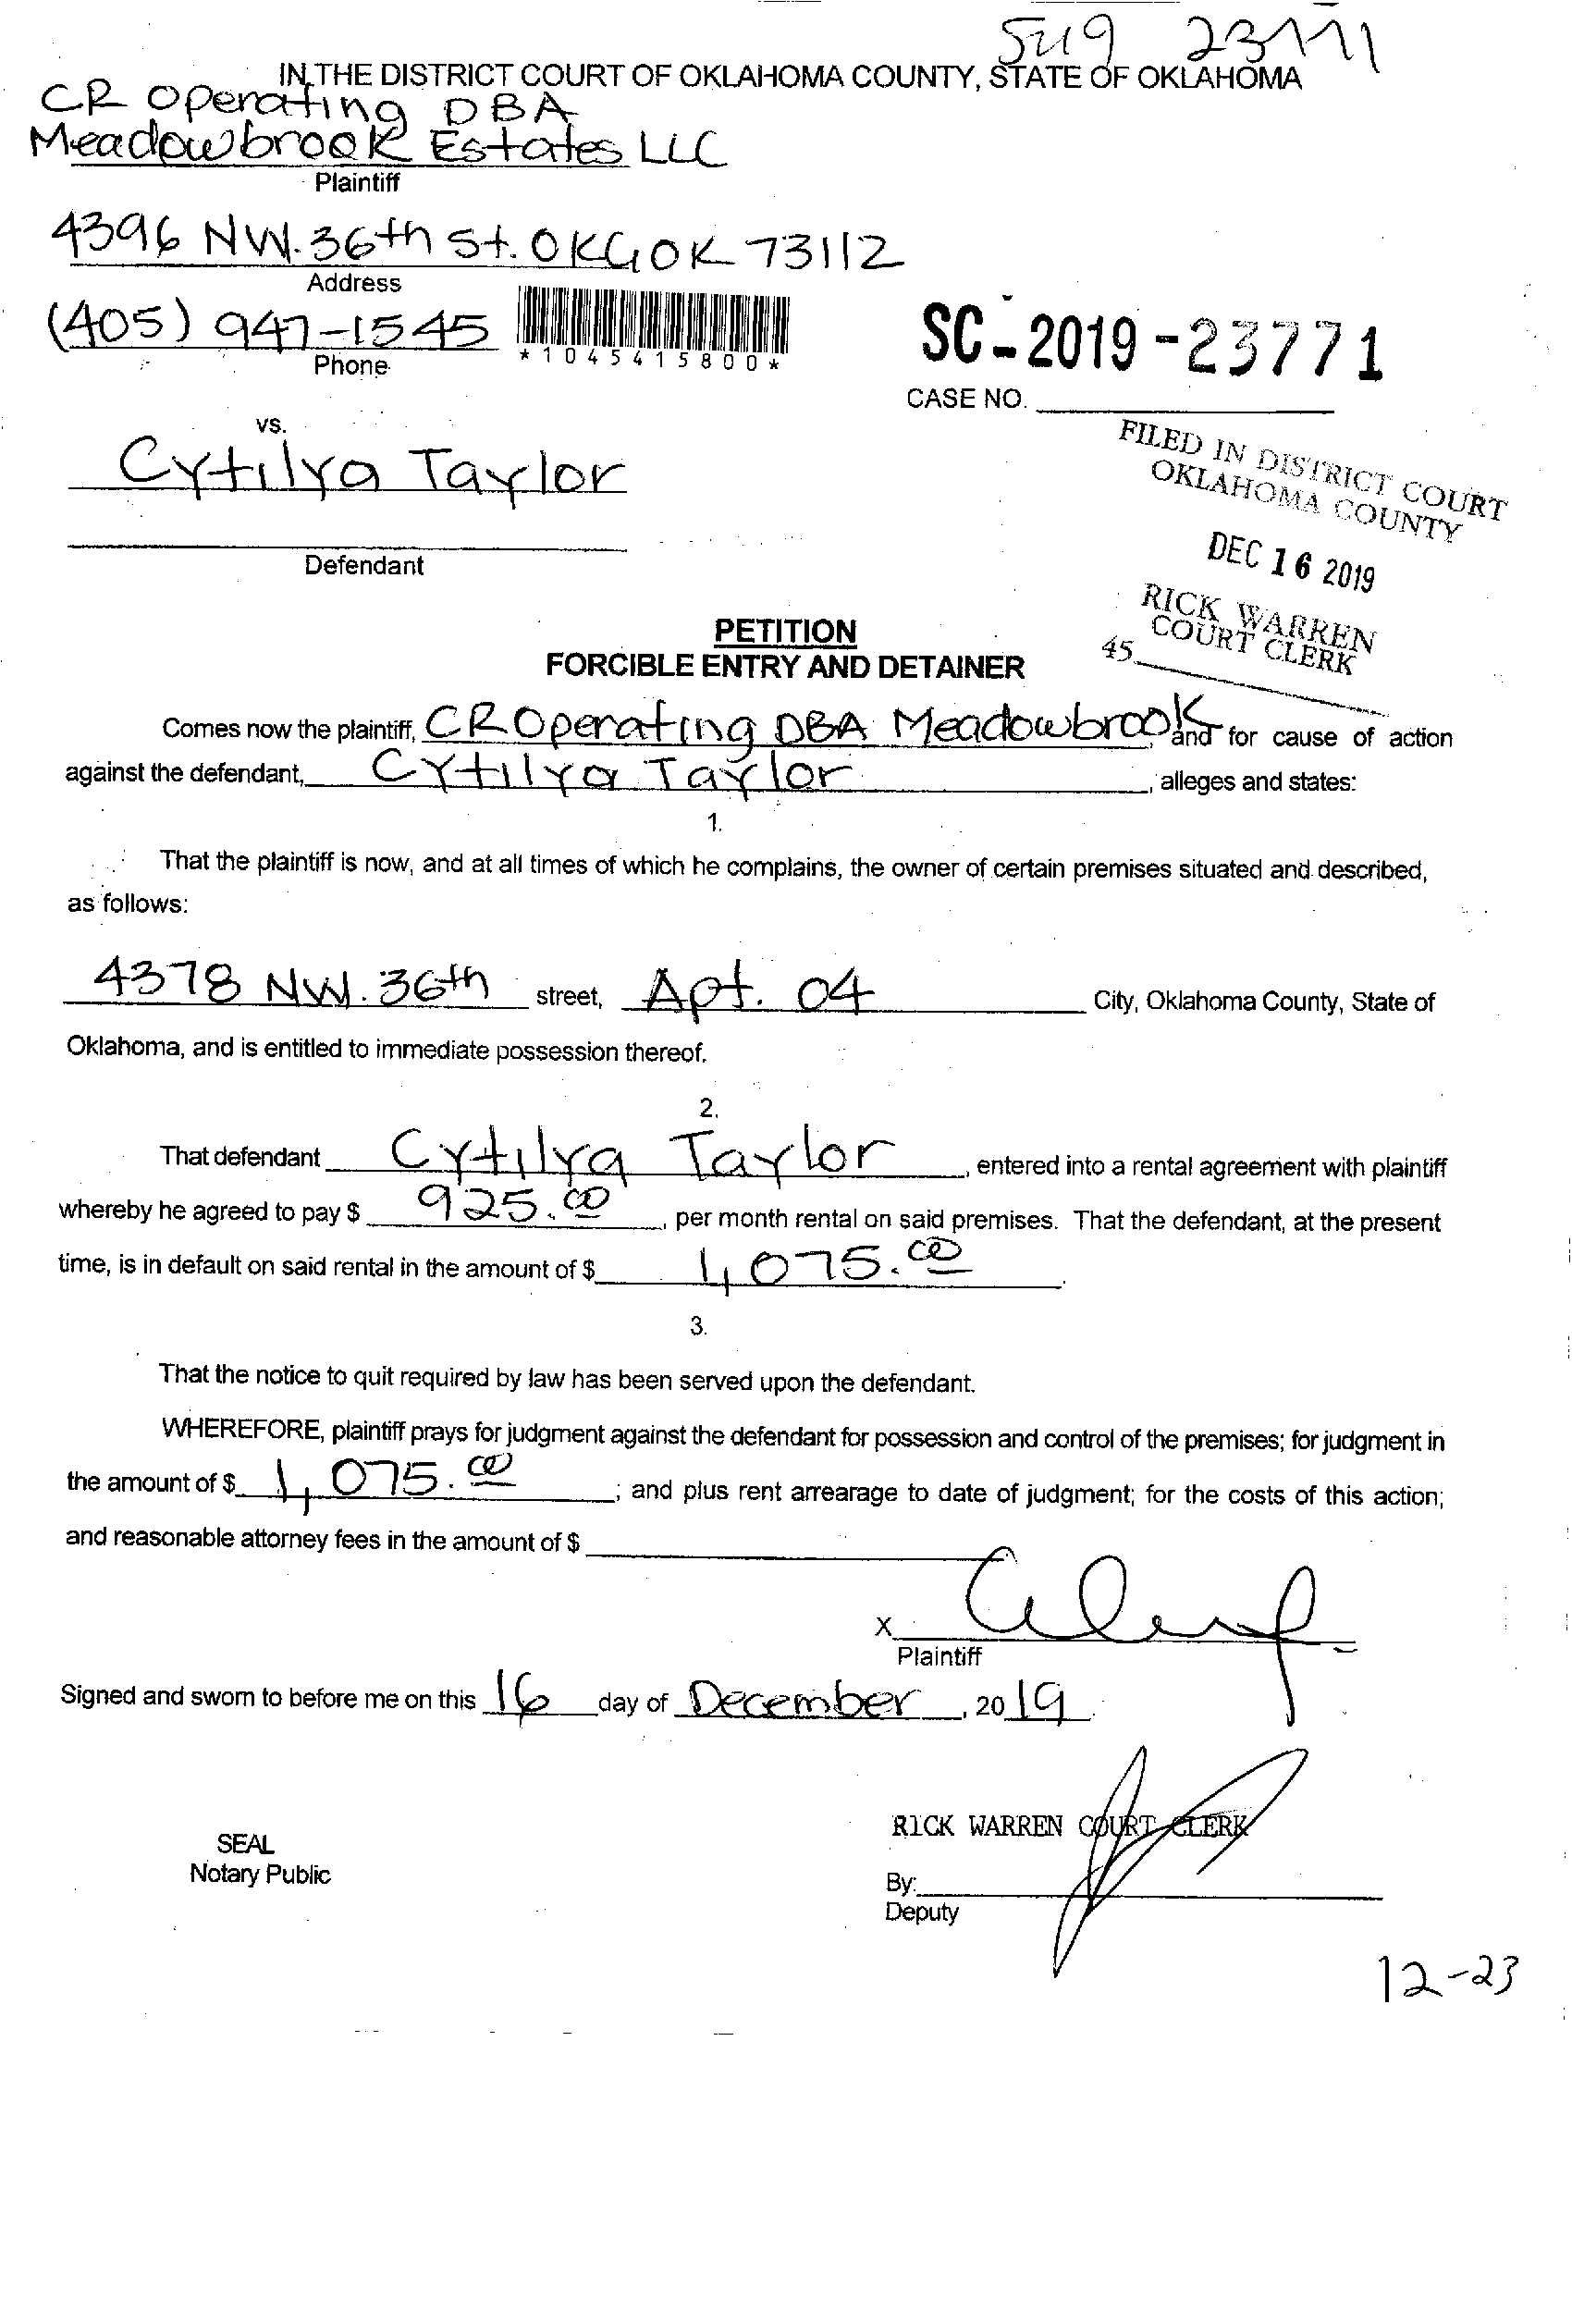 IN THE DISTRICT COURT OF OKLAHOMA COUNTY, STATE OF OKLAHOMA
CR Operating DBA
Meadowbrook Estates LLC
Plaintiff
4396 NW. 36th St. OKC OK 73112
Address
(405) 947-1545
*1045415800*
Phone
SC-2019-23771
CASE NO.
vs.
Cytilya Taylor
Defendant
FILED IN DISTRICT COURT
OKLAHOMA COUNTY
DEC 16 2019
RICK WARREN
COURT CLERK
45
PETITION
FORCIBLE ENTRY AND DETAINER
Comes now the plaintiff, CR Operating DBA Meadowbrook and for cause of action
against the defendant, Cytilya Taylor, alleges and states:
1.
That the plaintiff is now, and at all times of which he complains, the owner of certain premises situated and described,
as follows:
4378 NW. 36th street, Apt. 04 City, Oklahoma County, State of
Oklahoma, and is entitled to immediate possession thereof.
2.
That defendant Cytilya Taylor, entered into a rental agreement with plaintiff
whereby he agreed to pay $ 925.00, per month rental on said premises. That the defendant, at the present
time, is in default on said rental in the amount of $ 1,075.00.
3.
That the notice to quit required by law has been served upon the defendant.
WHEREFORE, plaintiff prays for judgment against the defendant for possession and control of the premises; for judgment in
the amount of $ 1,075.00; and plus rent arrearage to date of judgment; for the costs of this action;
and reasonable attorney fees in the amount of $
X
Plaintiff
Signed and sworn to before me on this 16 day of December, 2019
RICK WARREN COURT CLERK
SEAL
Notary Public
By:
Deputy
12-23